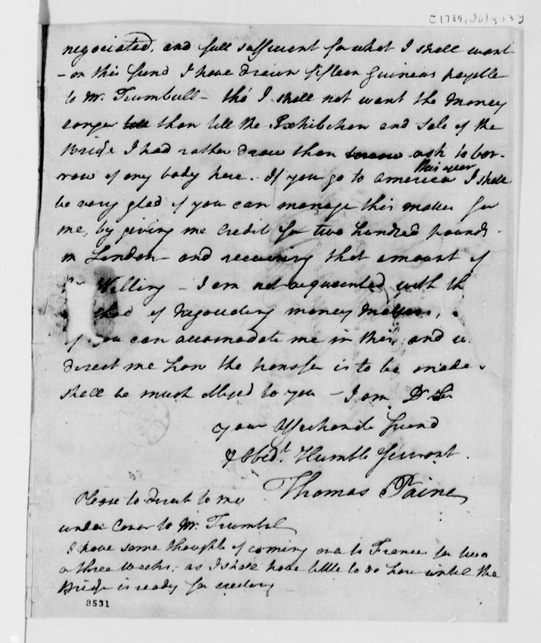 C 1789, July 13
negociated, and full sufficient for what I shall want
- on this fund I have drawn fifteen Guineas payable
to Mr. Trumbull - tho' I shall not want the money
longer than till the Exhibition and Sale of the
Bridge I had rather draw than ask to bor-
row of any body here. If you go to america this year I shall
be very glad if you can manage this matter for
me, by giving me Credit for two hundred pounds
in London - and receiving that amount of
Willing - I am not acquainted with th
of negociating money matters,
you can accomodate me in this, and
direct me how the transfer is to be made
shall be much obliged to you - I am Dr Sir
your affectionate friend
& Obedt. Humble Servant.
Thomas Paine
Please to direct to me
under Cover to Mr. Trumbul
I have some thoughts of coming over to France for two
or three weeks, as I shall have little to do here until the
Bridge is ready for erecting
8531